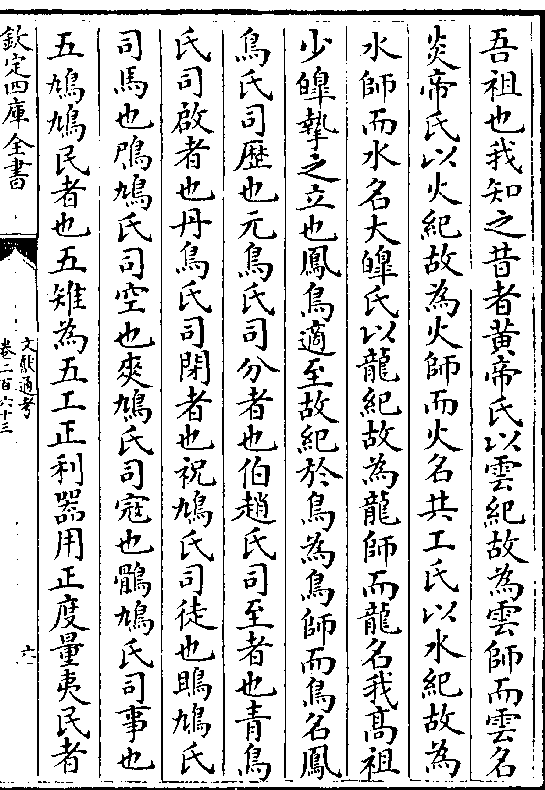 吾祖也我知之昔者黄帝氏以雲紀故為雲師而雲名
炎帝氏以火紀故為火師而火名共工氏以水紀故為
水師而水名大皥氏以龍紀故為龍師而龍名我髙祖
少皥摯之立也鳳鳥適至故紀於鳥為鳥師而鳥名鳳
鳥氏司歴也元鳥氏司分者也伯趙氏司至者也青鳥
氏司啟者也丹鳥氏司閉者也祝鳩氏司徒也鴡鳩氏
司馬也鳲鳩氏司空也爽鳩氏司寇也鶻鳩氏司事也
五鳩鳩民者也五雉為五工正利器用正度量夷民者
欽定四庫全書
文獻通考
卷二百六十三
六